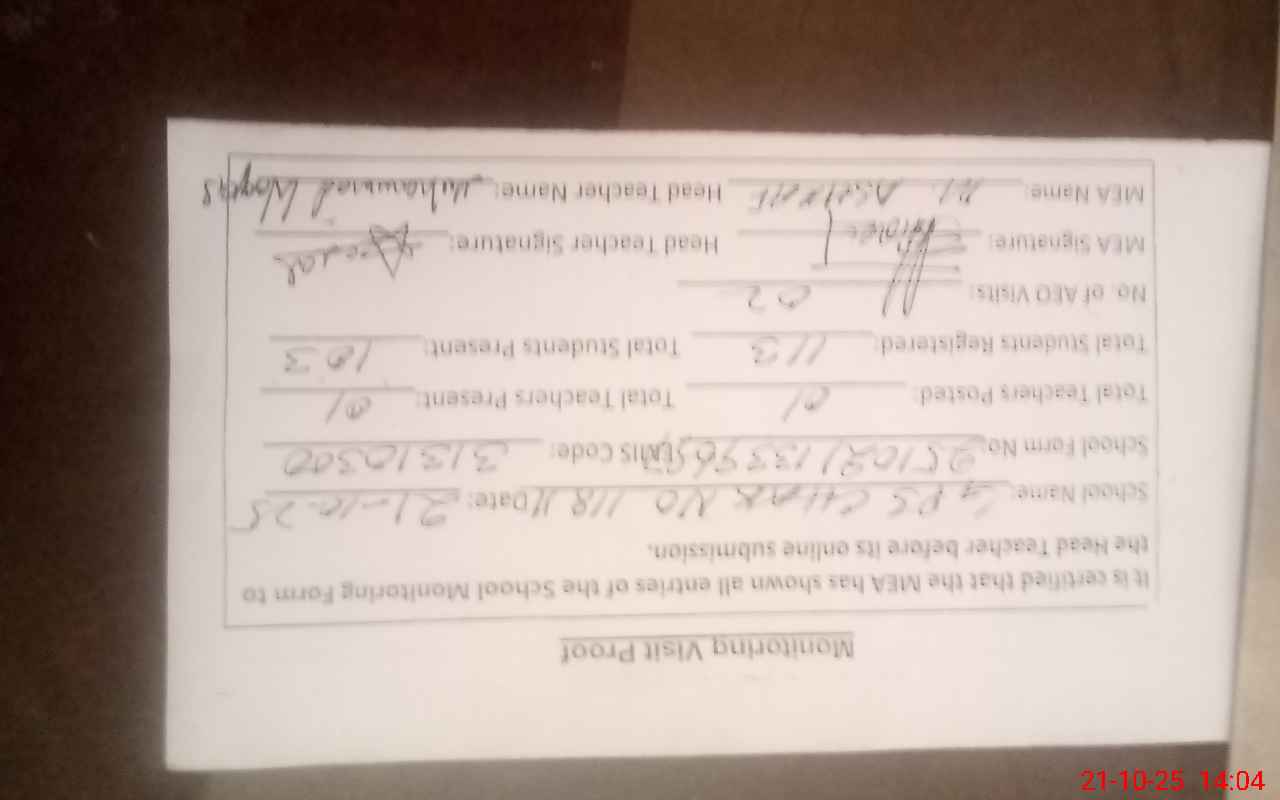 Monitoring Visit Proof
It is certified that the MEA has shown all entries of the School Monitoring Form to
the Head Teacher before its online submission.
School Name: GPS CHAK NO 118 Date: 21-10-25
School Form No: EMIS Code: 31310300
Total Teachers Posted: 01 Total Teachers Present: 01
Total Students Registered: 113 Total Students Present: 103
No. of AEO Visits: 02
MEA Signature: Head Teacher Signature:
MEA Name: Head Teacher Name: Muhammad
21-10-25 14:04